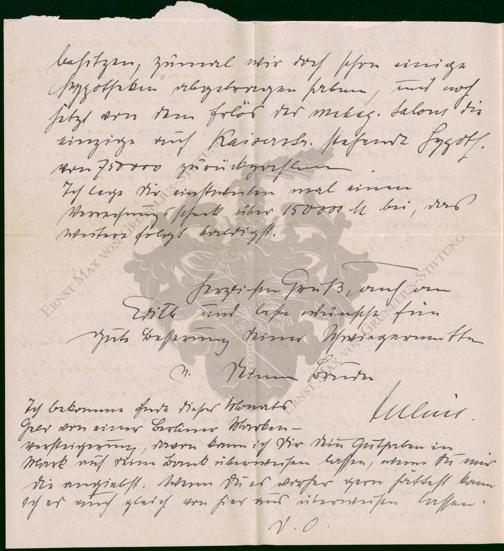 besitzen, zumal wir doch schon einige
Hypotheken abgetragen haben, und noch
jetzt von dem Erlös des Meteg. Salons die
einzige auf Kaiserstr. stehende Hypoth.
von 750000 zurückzahlen.
Ich lege Dir einstweilen mal einen
Verrechnungsscheck über 150000 M bei, das
weitere folgt baldigst.
Herzlichen Gruß, auch an
Edith und beste Wünsche für
gute Besserung Deiner Schwiegermutter
Dein Bruder
Julius.
Ich bekomme Ende dieses Monats
Geld von einer Berliner Marken-
versteigerung, davon kann ich Dir Dein Guthaben in
Mark auf Deine Bank überweisen lassen, wenn Du mir
die angiebst. Wenn Du es vorher gern hättest kann
ich es auch gleich von hier aus überweisen lassen.
D. O.
ERNST MAX VON GRUNELIUS-STIFTUNG